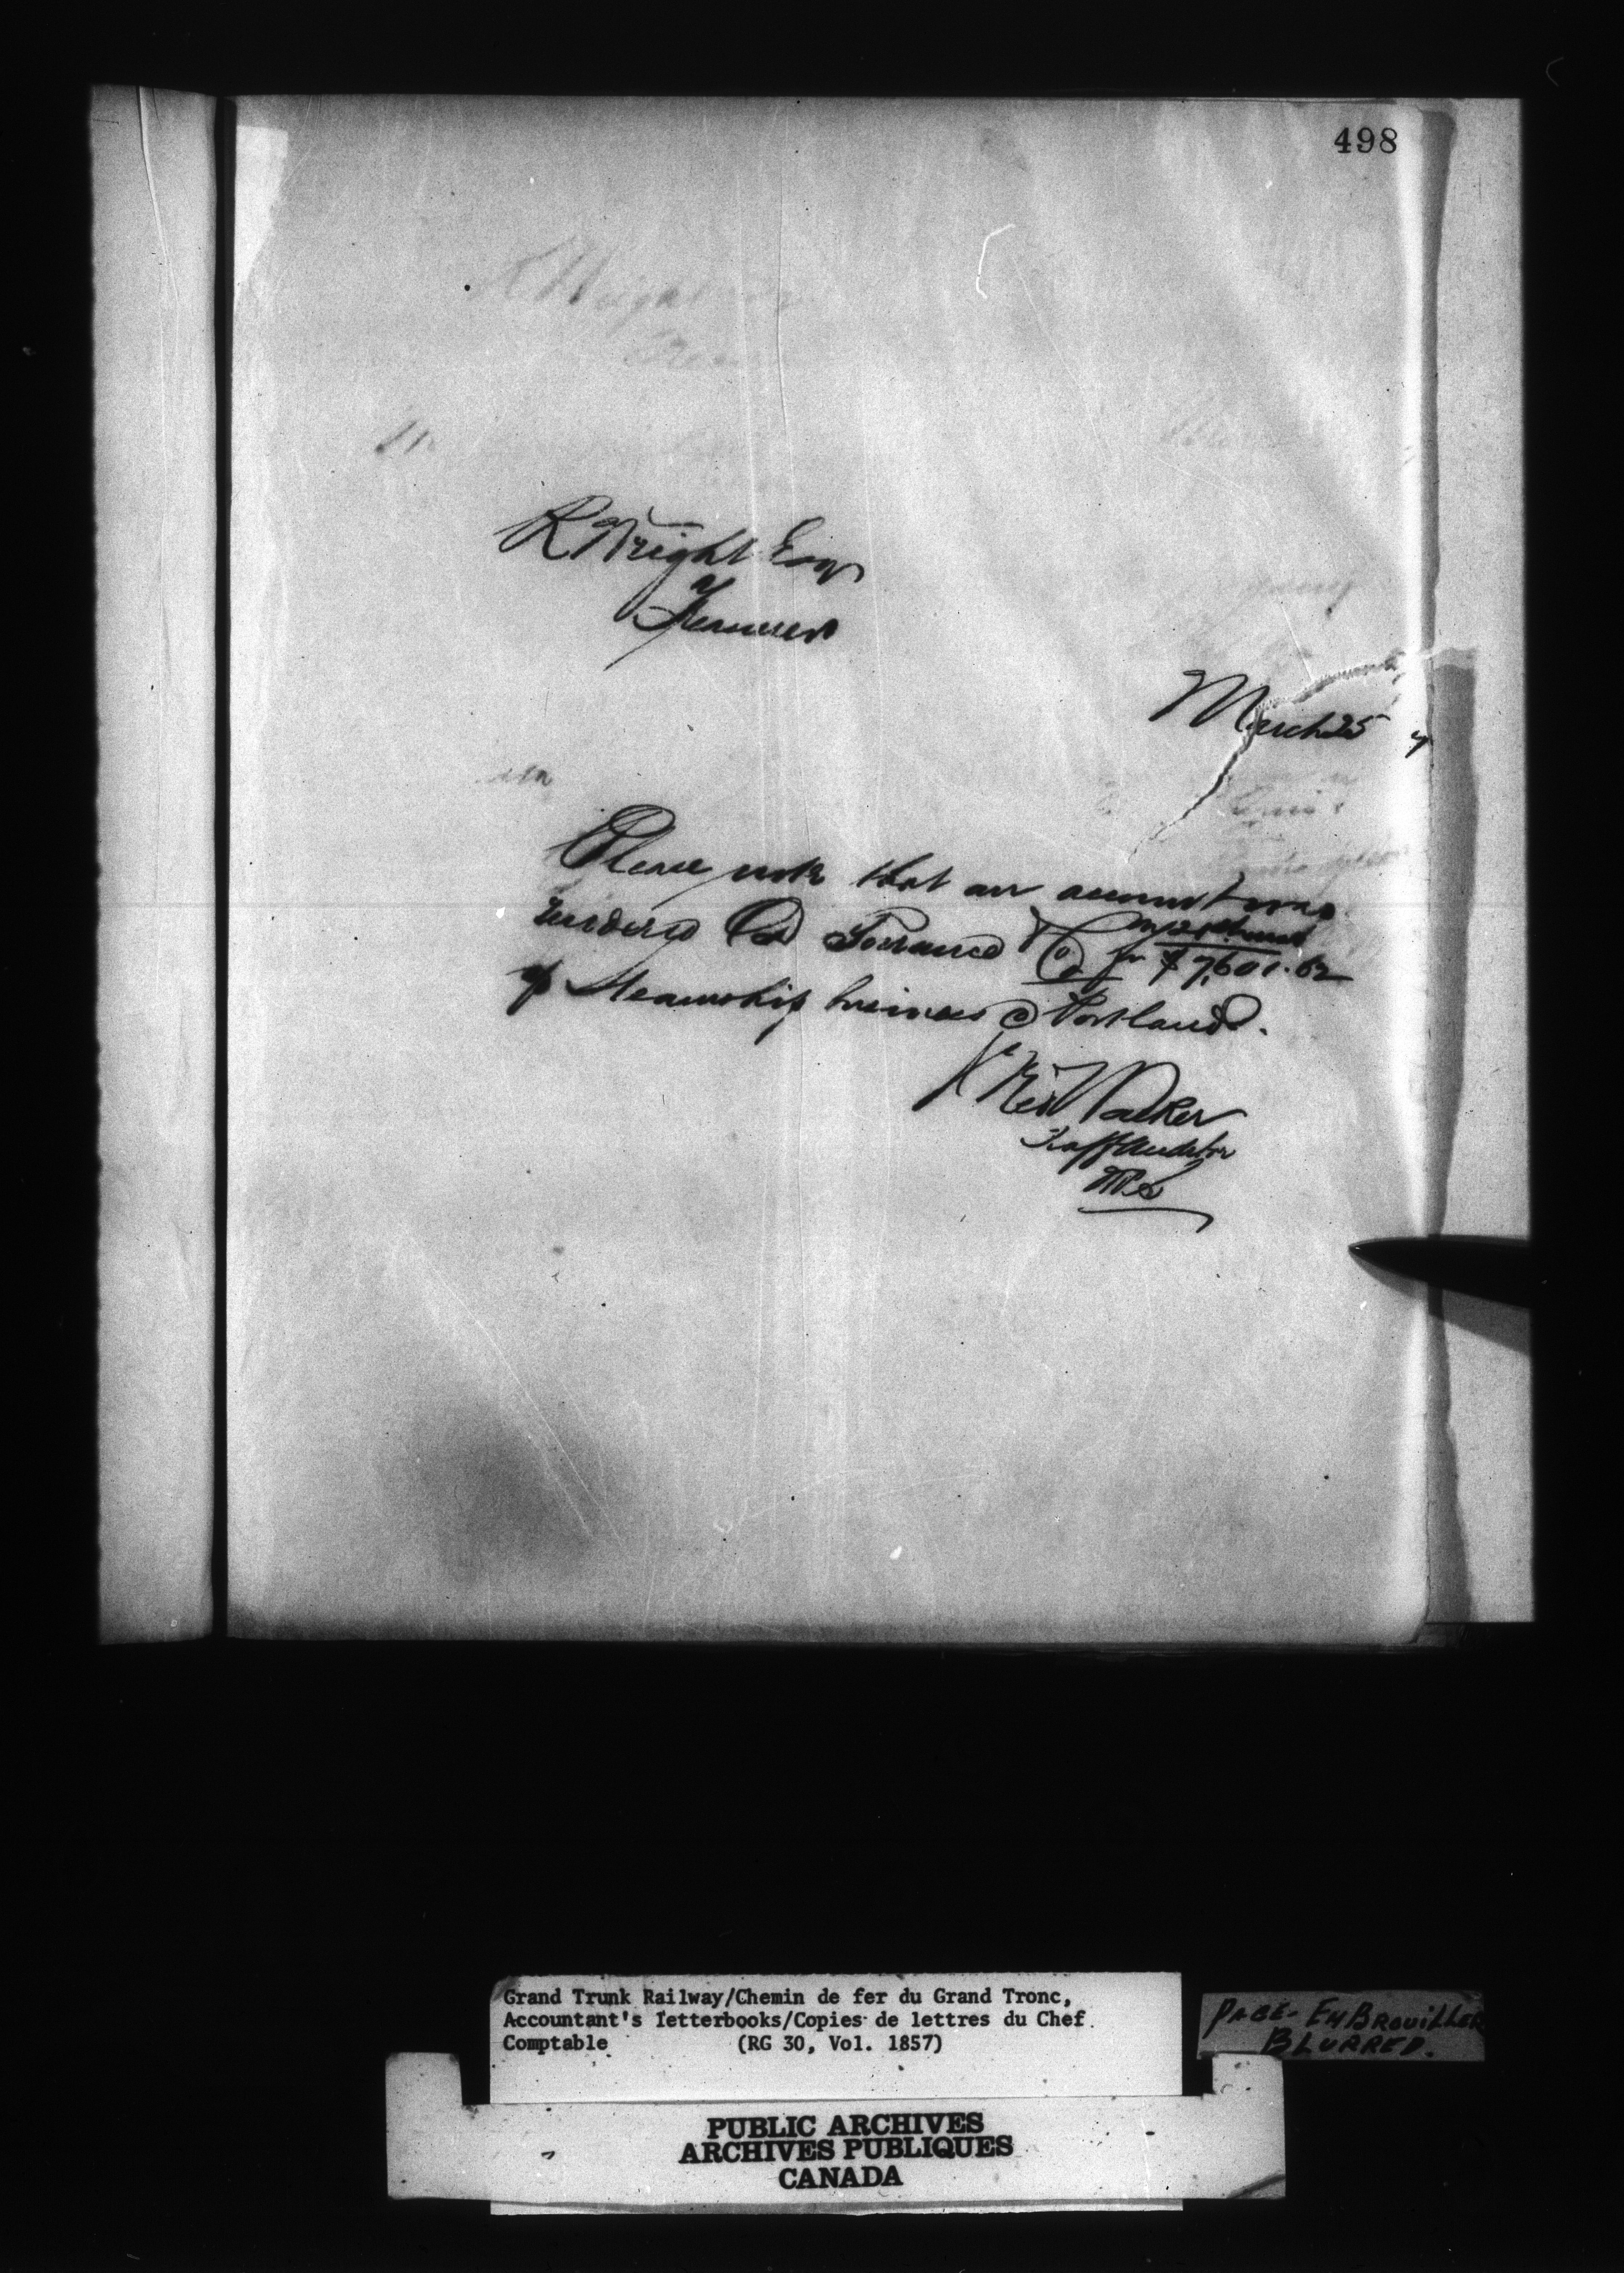 498
R Wright Esq
Treasurer
March 25
Please note that an account was
rendered D Torrance & Co for $7,601.62
on 21st
a/c Steamship business @ Portland.
Parker
Traff Auditor
Grand Trunk Railway/Chemin de fer du Grand Tronc,
Accountant's letterbooks/Copies de lettres du Chef
Comptable (RG 30, Vol. 1857)
PAGE - EMBROUILLER
BLURRED.
PUBLIC ARCHIVES
ARCHIVES PUBLIQUES
CANADA